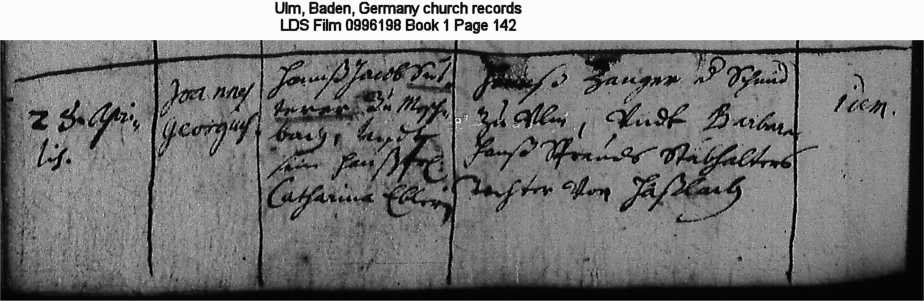 Ulm, Baden, Germany church records
LDS Film 0996198 Book 1 Page 142
28. Apri-
lis.
Joannes
Georgius.
Hannß Jacob Sut-
terer zu Mösch-
bach, undt
sein Haußfr.
Catharina Eblerin
Hannß Zanger d Schmid
zu Ulm, Undt Barbara
Hanß Stabhalters
tochter von Haßlach
idem.